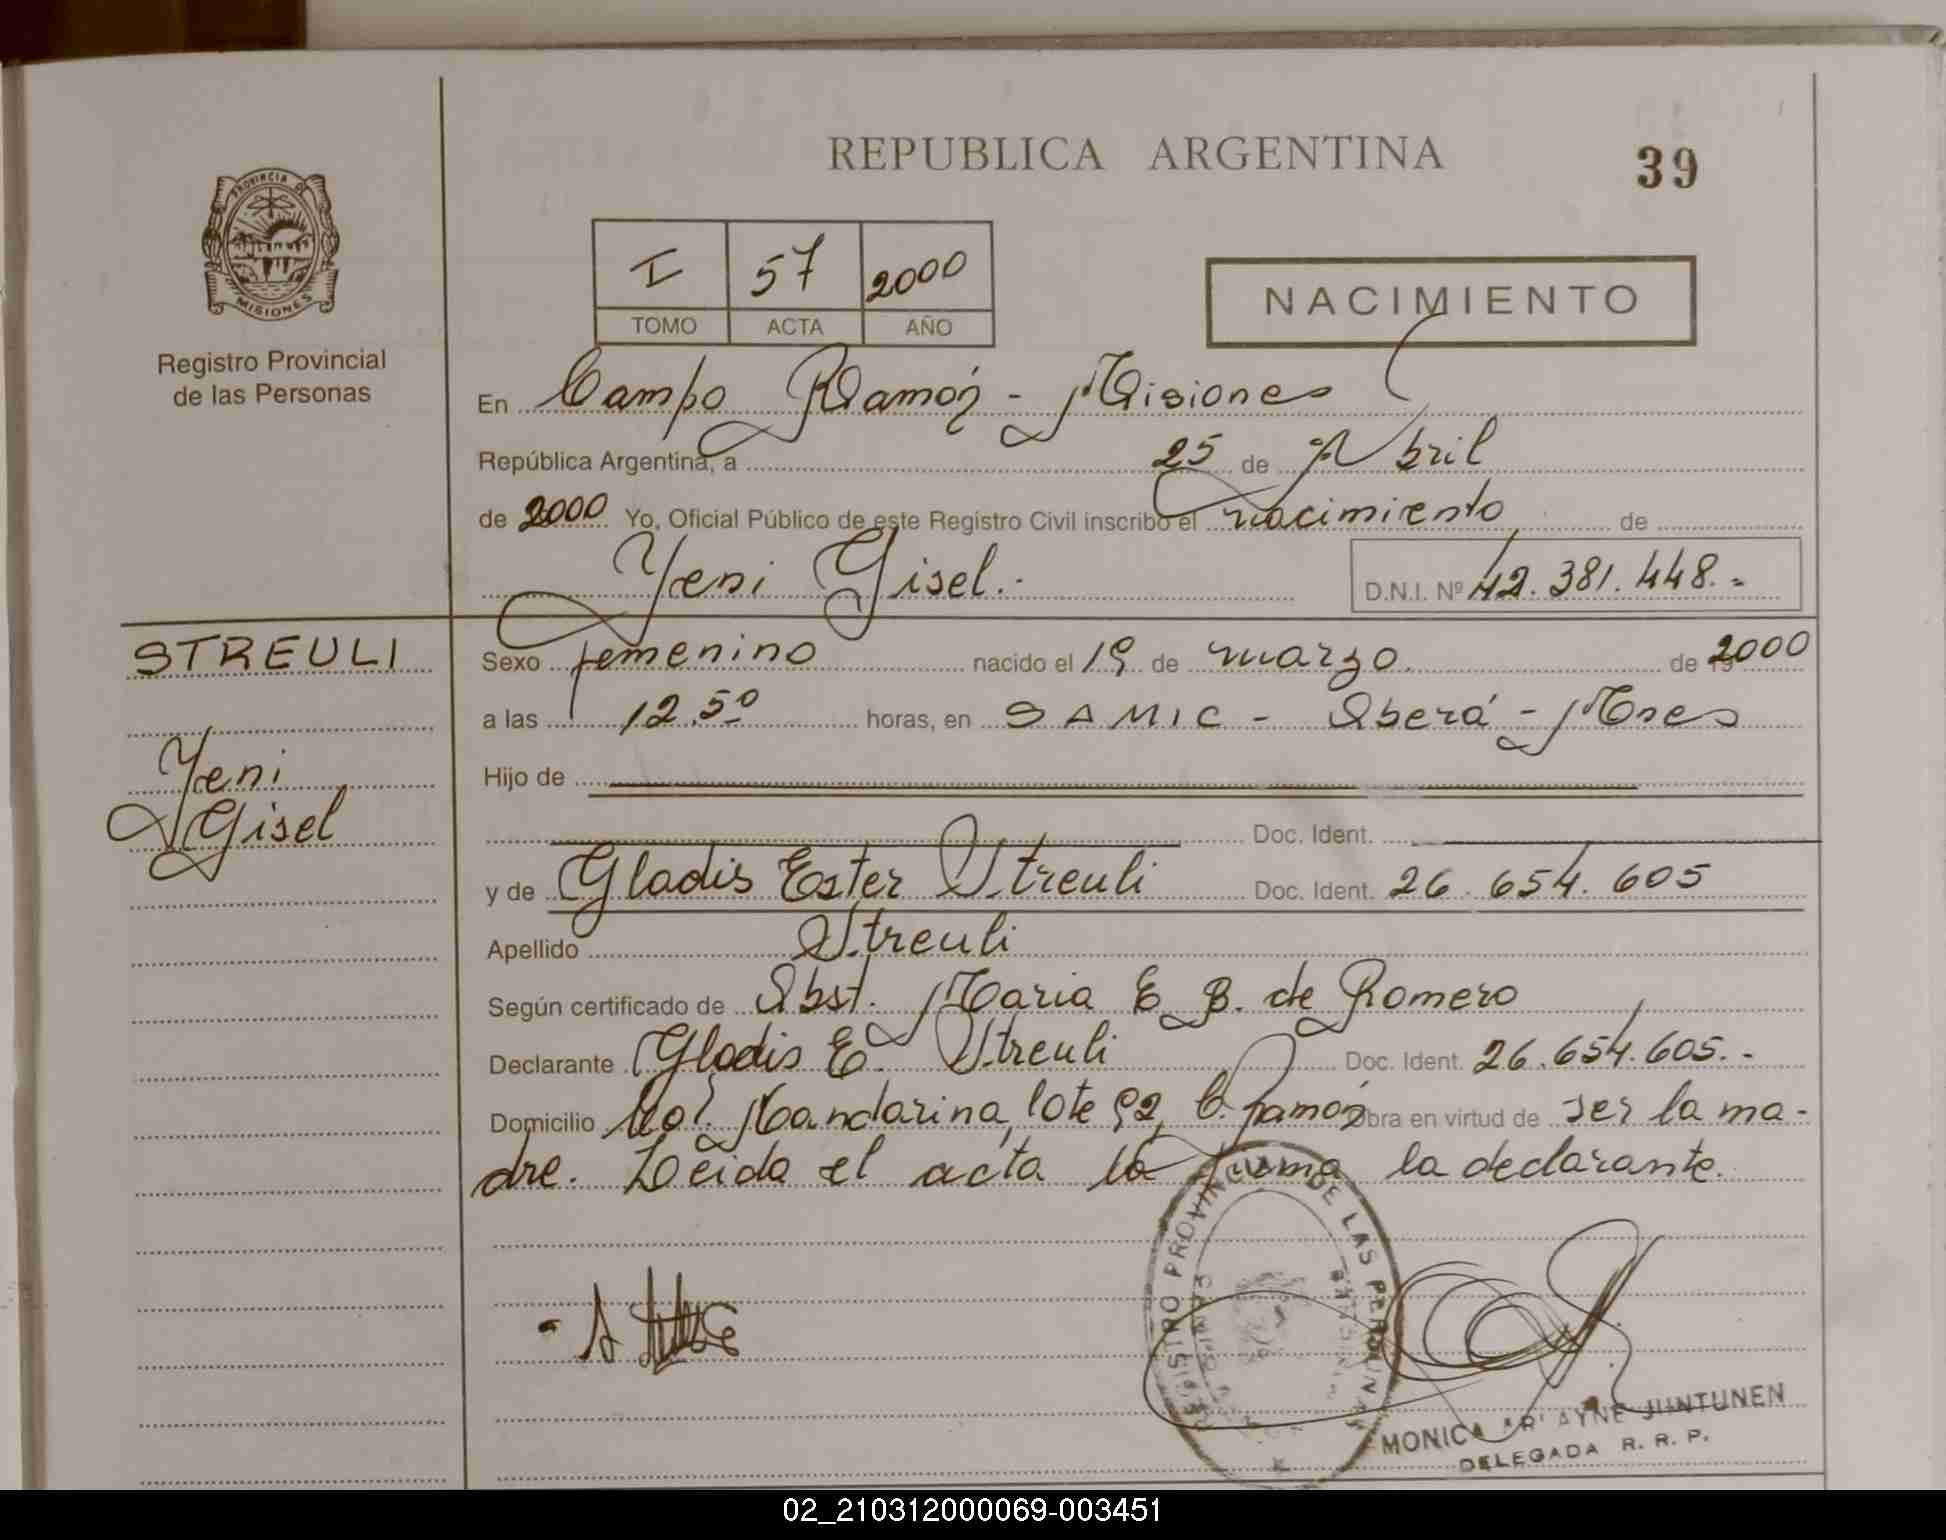 REPUBLICA ARGENTINA
39
PROVINCIA DE
MISIONES
Registro Provincial
de las Personas
I 57 2000
TOMO ACTA AÑO
NACIMIENTO
En Campo Ramón - Misiones
República Argentina, a 25 de Abril
de 2000 Yo, Oficial Público de este Registro Civil inscribo el nacimiento de
Yeni Gisel.- D.N.I. Nº 42.381.448.-
STREULI
Yeni
Gisel
Sexo femenino nacido el 19 de marzo de 2000
a las 12.50 horas, en SAMIC - Oberá - Mnes
Hijo de
Doc. Ident.
y de Gladis Ester Streuli Doc. Ident. 26.654.605
Apellido Streuli
Según certificado de Obst. Maria E B. de Romero
Declarante Gladis E. Streuli Doc. Ident. 26.654.605.-
Domicilio Col. Mandarina, lote 92, C. Ramón Obra en virtud de ser la ma-
dre. Leida el acta la firma la declarante.
REGISTRO PROVINCIAL DE LAS PERSONAS
MONICA JUNTUNEN
DELEGADA R. R. P.
02_210312000069-003451